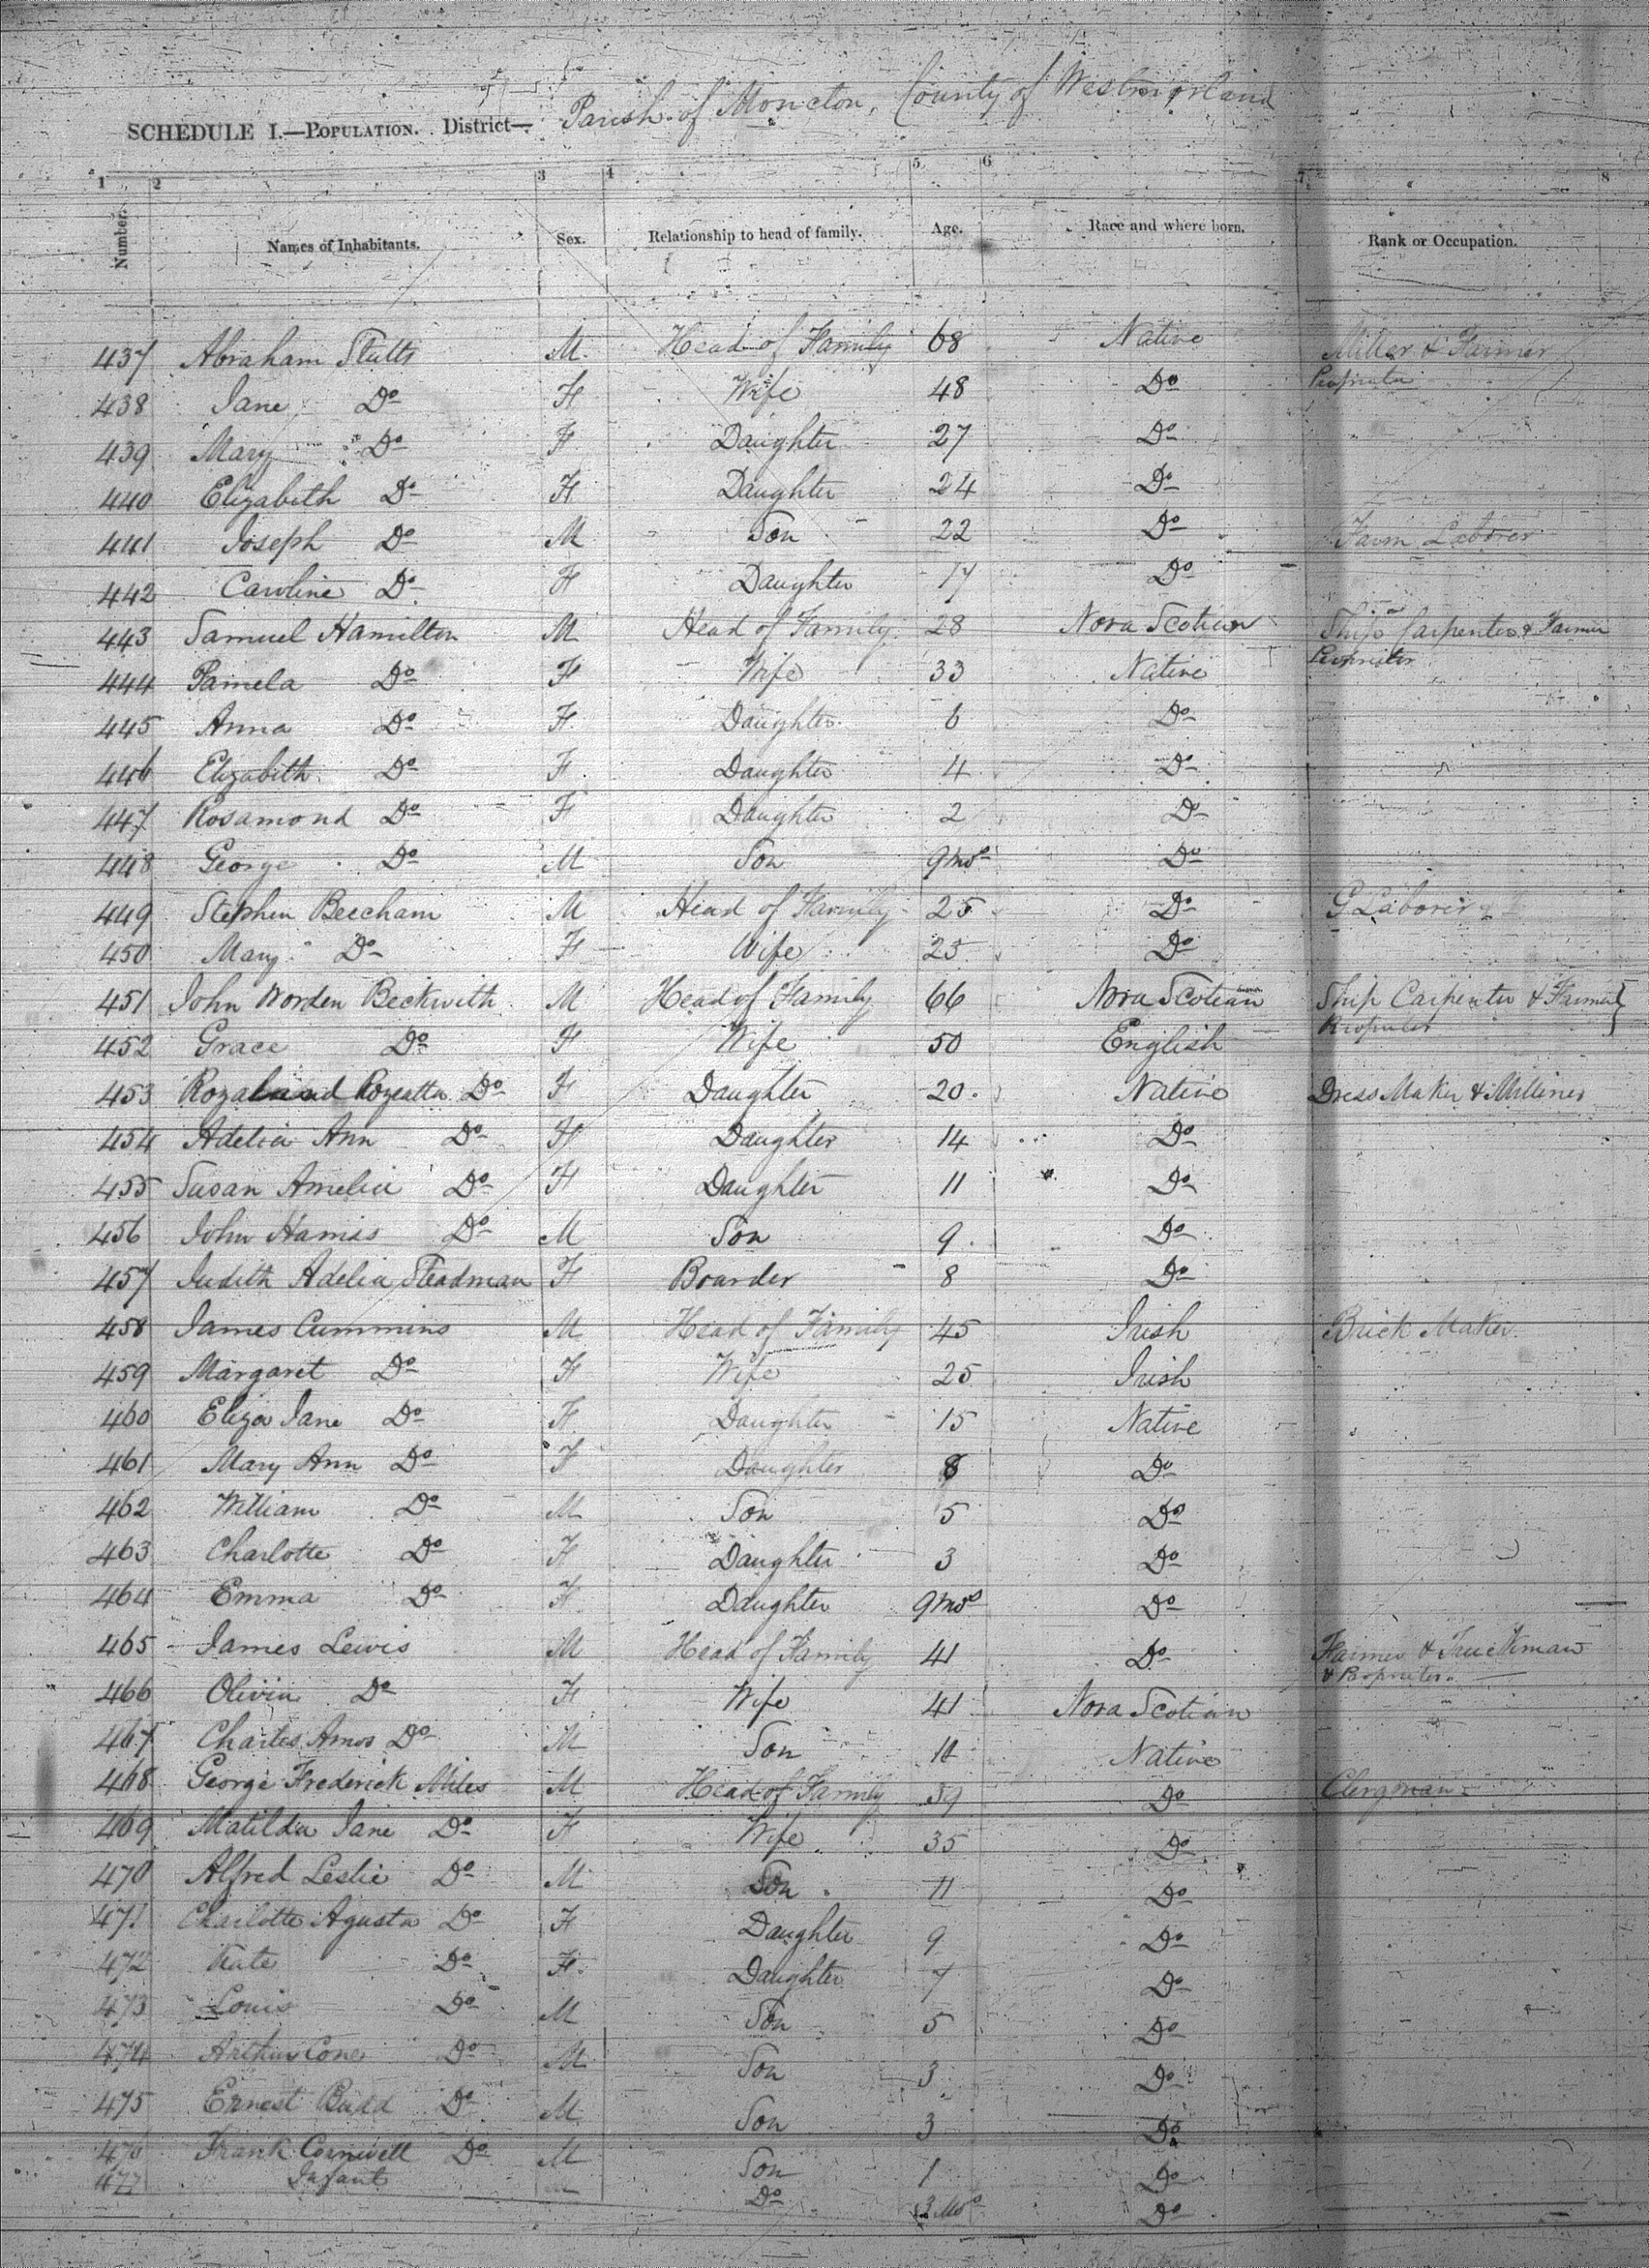 Parish of Moncton, County of Westmorland
SCHEDULE I.—POPULATION. District—
1 2 3 4 5 6 7 8
Number. Names of Inhabitants. Sex. Relationship to head of family. Age. Race and where born. Rank or Occupation.
437 Abraham Stults M. Head of Family 68 Native Miller & Farmer
Proprietor
438 Jane Do F Wife 48 Do
439 Mary Do F Daughter 27 Do
440 Elizabeth Do F Daughter 24 Do
441 Joseph Do M Son 22 Do Farm Laborer
442 Caroline Do F Daughter 17 Do
443 Samuel Hamilton M Head of Family 28 Nova Scotian Ship Carpenter & Farmer
Proprietor
444 Pamela Do F Wife 33 Native
445 Anna Do F Daughter 6 Do
446 Elizabeth Do F Daughter 4 Do
447 Rosamond Do F Daughter 2 Do
448 George Do M Son 9 mos Do
449 Stephen Beecham M Head of Family 25 Do G Laborer
450 Mary Do F Wife 25 Do
451 John Worden Beckwith M Head of Family 66 Nova Scotian Ship Carpenter & Farmer
Proprietor
452 Grace Do F Wife 50 English
453 Rozeatta Do F Daughter 20 Native Dress Maker & Milliner
454 Adelia Ann Do F Daughter 14 Do
455 Susan Amelia Do F Daughter 11 Do
456 John Harris Do M Son 9 Do
457 Judith Adelia Steadman F Boarder 8 Do
458 James Cummins M Head of Family 45 Irish Brick Maker
459 Margaret Do F Wife 25 Irish
460 Eliza Jane Do F Daughter 15 Native
461 Mary Ann Do F Daughter 8 Do
462 William Do M Son 5 Do
463 Charlotte Do F Daughter 3 Do
464 Emma Do F Daughter 9 mos Do
465 James Lewis M Head of Family 41 Do Farmer & Truckman
& Proprietor
466 Olivia Do F Wife 41 Nova Scotian
467 Charles Amos Do M Son 11 Native
468 George Frederick Miles M Head of Family 39 Do Clergman
469 Matilda Jane Do F Wife 35 Do
470 Alfred Leslie Do M Son 11 Do
471 Charlotte Agusta Do F Daughter 9 Do
472 Kate Do F Daughter 7 Do
473 Louis Do M Son 5 Do
474 Arthur Cone Do M Son 3 Do
475 Ernest Budd Do M Son 3 Do
476 Frank Cornwell Do M Son 1 Do
477 Infant Do 3 Mos Do